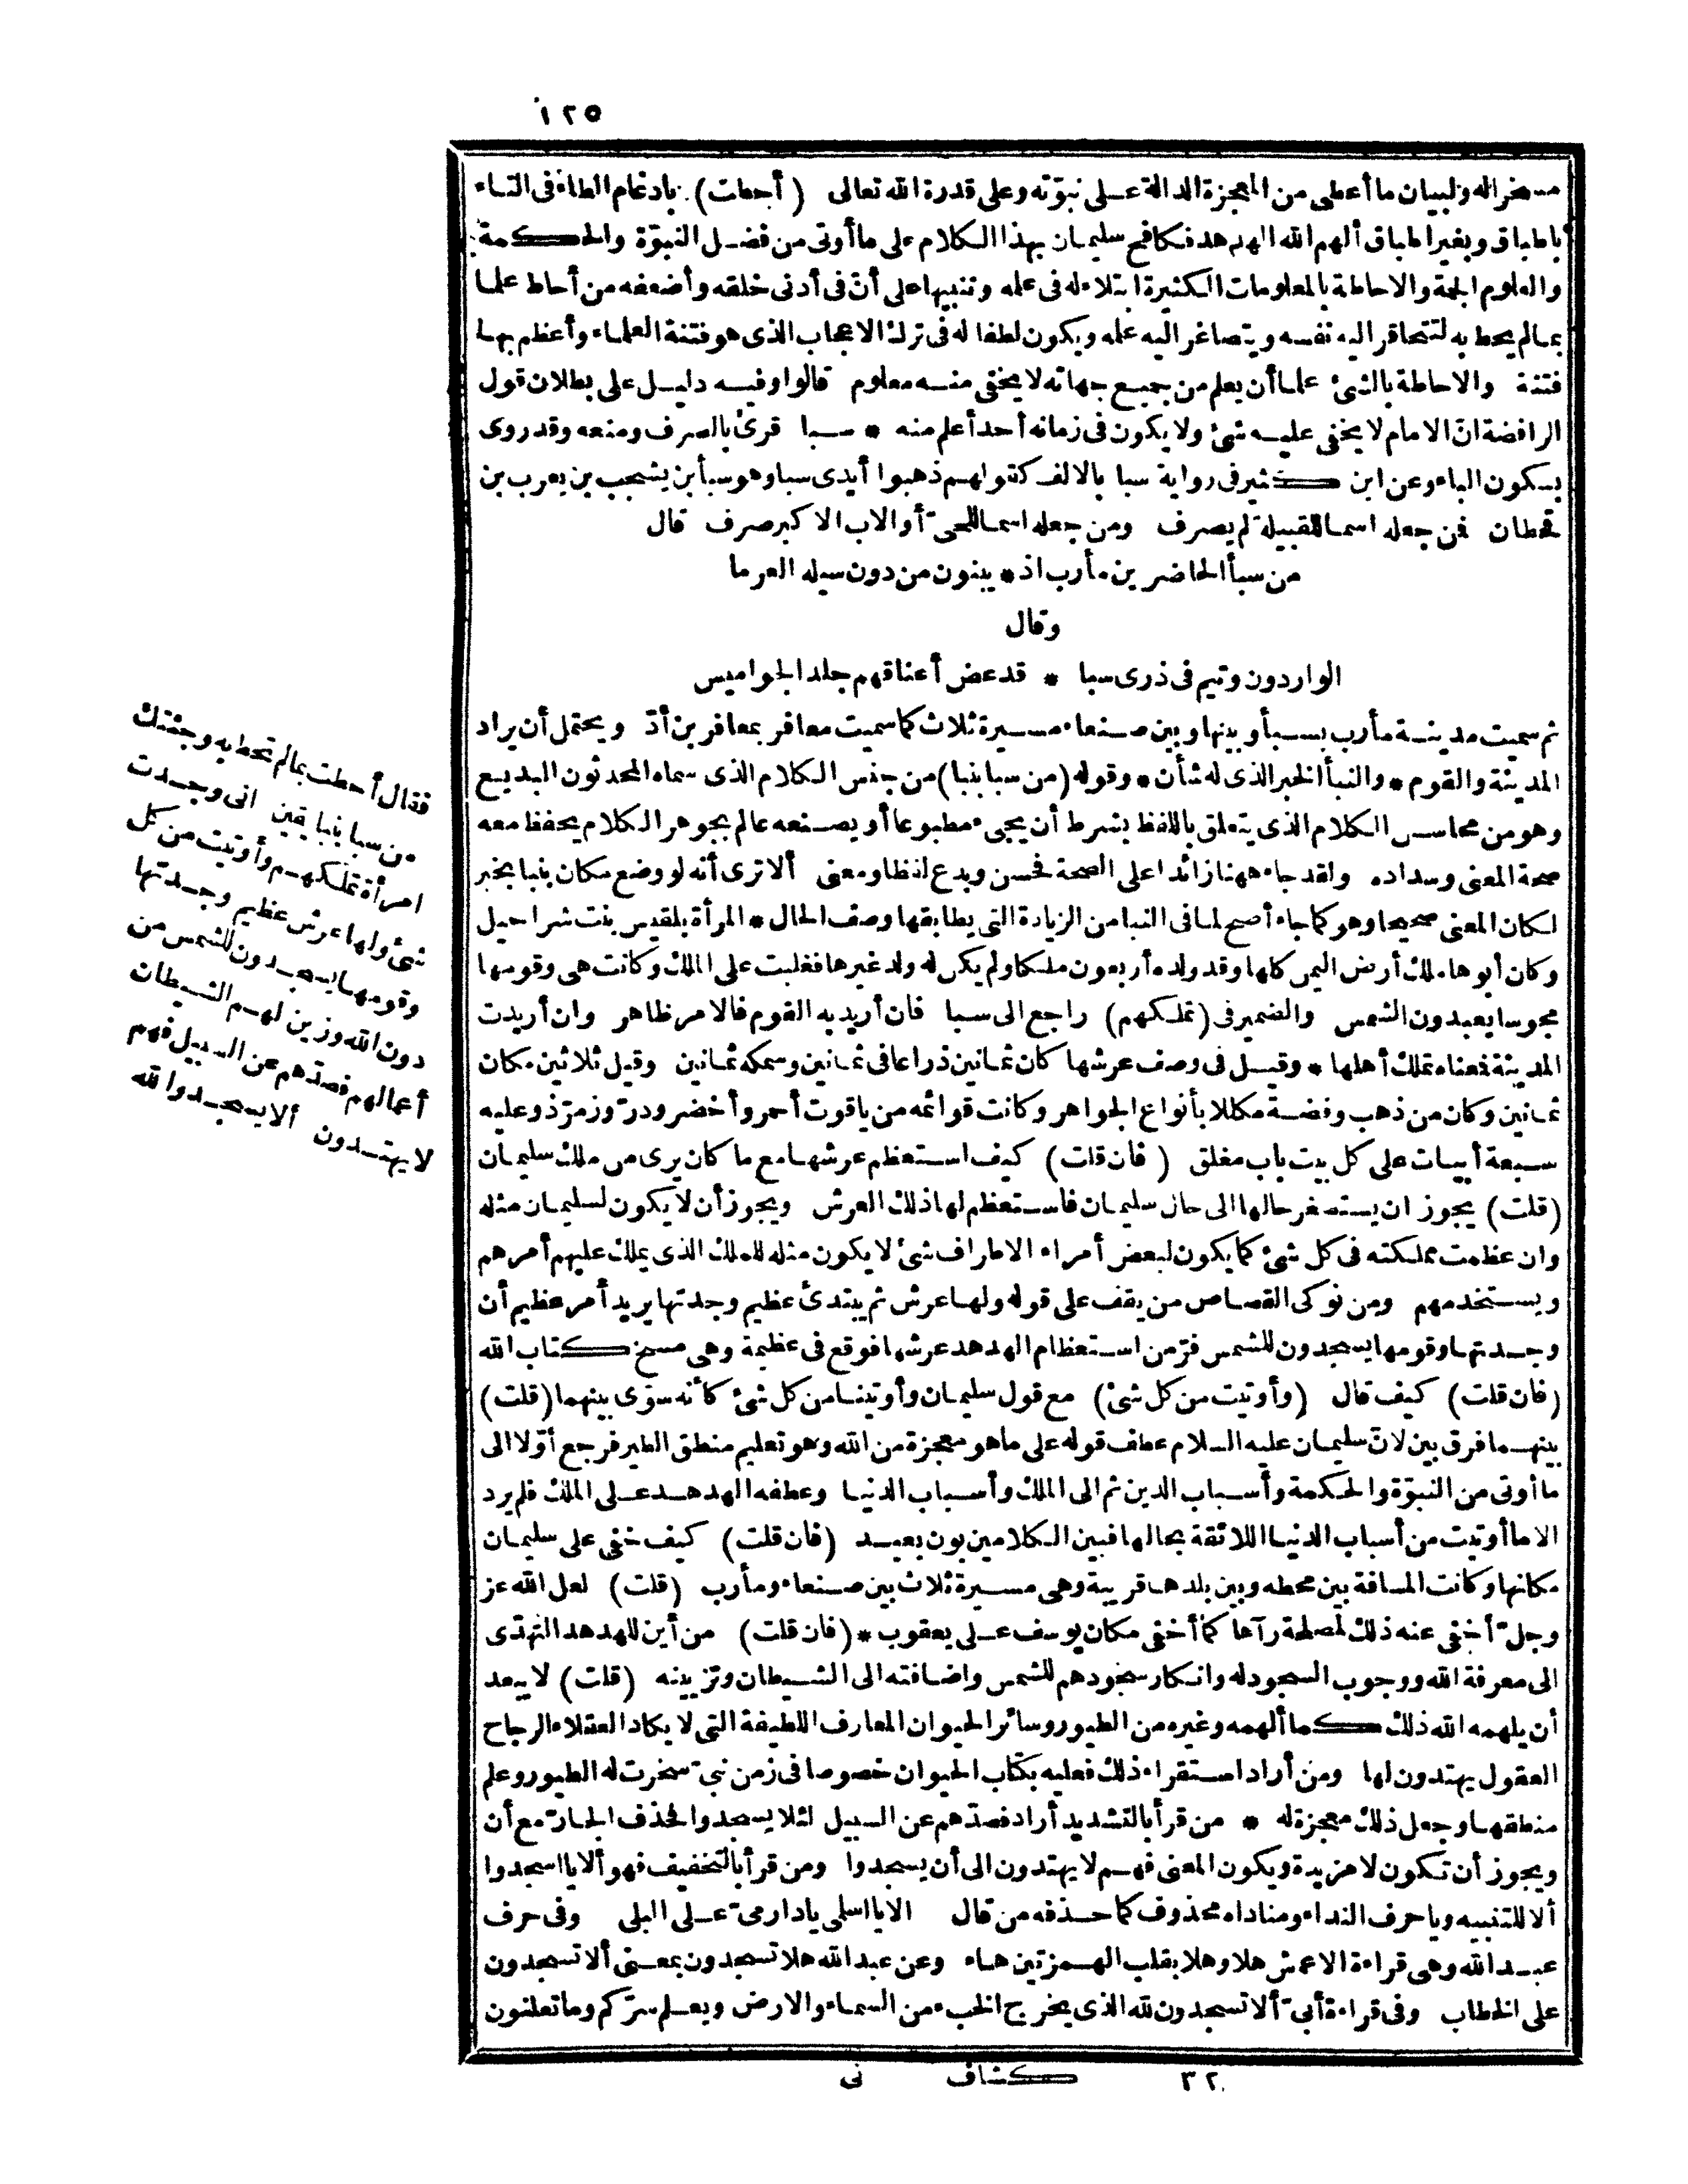 ١٢٥
مسخرا له ولبيان ما أعطى من المعجزة الدالة عـلى نبوّته وعلى قدرة الله تعالى (أحطت) بادغام الطاء فى التـاء
باطباق وبغير اطباق ألهم الله الهدهد فكافح سليمـان بهذا الـكلام على ما أوتى من فضـل النبوّة والحكمة
والعلوم الجمة والاحاطة بالمعلومات الـكثيرة ابتلاء له فى علمه وتنبيها على أنّ فى أدنى خلقه وأضعفه من أحاط علمـا
بمـا لم يحط به لتتحاقر اليه نفسه ويتصاغر اليه علمه ويكون لطفا له فى ترك الاعجاب الذى هو فتنة العلمـاء وأعظم بهـا
فتنة والاحاطة بالشئ علمـا أن يعلم من جميـع جهاته لا يخفى منـه معلوم قالوا وفيـه دليـل على بطلان قول
الرافضة انّ الامام لا يخفى عليـه شئ ولا يكون فى زمانه أحد أعلم منه * سـبا قرئ بالصرف ومنعه وقد روى
بسكون الباء وعن ابن كثير فى رواية سبا بالالف كقولهـم ذهبوا أيدى سبا وهو سبأ بن يشجب بن يعرب بن
قحطان فمن جعله اسمـا للقبيلة لم يصرف ومن جعله اسمـا للحىّ أو الاب الاكبر صرف قال
من سبأ الحاضرين مأرب اذ * يبنون من دون سيله العرما
وقال
الواردون وتيم فى ذرى سبا * قد عض أعناقهم جلد الجواميس
ثم سميت مدينـة مأرب بسـبأ وبينها وبين صـنعاء مسـيرة ثلاث كما سميت معافر بمعافر بن أدّ ويحتمل أن يراد
المدينة والقوم * والنبأ الخبر الذى له شأن * وقوله (من سبا بنبا) من جنس الـكلام الذى سماه المحدثون البديـع
وهو من محاسـن الـكلام الذى يتعلق باللفظ بشرط أن يجىء مطبوعا أو يصـنعه عالم بجوهر الـكلام يحفظ معه
صحة المعنى وسداده ولقد جاء ههنا زائدا على الصحة فحسن وبدع لفظا ومعنى ألا ترى أنه لو وضع مكان بنبا بخبر
لـكان المعنى صحيحا وهو كما جاء أصح لمـا فى النبا من الزيادة التى يطابقها وصف الحال * المرأة بلقيس بنت شراحيل
وكان أبوها ملك أرض اليمن كلها وقد ولده أربعون ملـكا ولم يكن له ولد غيرها فغلبت على الملك وكانت هى وقومها
مجوسا يعبدون الشمس والضمير فى (تملـكهم) راجع الى سـبا فان أريد به القوم فالامر ظاهر وان أريدت
المدينة فمعناه تملك أهلها * وقيـل فى وصف عرشها كان ثمـانين ذراعا فى ثمـانين وسمكه ثمـانين وقيل ثلاثين مكان
ثمـانين وكان من ذهب وفضـة مكللا بأنواع الجواهر وكانت قوائمه من ياقوت أحمر وأخضر ودرّ وزمرّذ وعليه
سـبعة أبيـات على كل بيت باب مغلق (فان قلت) كيف استـعظم عرشهـا مع ما كان يرى من ملك سليمـان
(قلت) يجوز ان يستصغر حالها الى حال سليمـان فاستـعظم لها ذلك العرش ويجوز أن لا يكون لسليمـان مثله
وان عظمت مملـكته فى كل شئ كما يكون لبعض أمراء الاطراف شئ لا يكون مثله للملك الذى يملك عليهم أمرهم
ويسـتخدمهم ومن نوكى القصـاص من يقف على قوله ولهـا عرش ثم يبتدئ عظيم وجدتها يريد أمر عظيم أن
وجـدتهـا وقومها يسجدون للشمس فرّ من استـعظام الهدهد عرشها فوقع فى عظيمة وهى مسخ كتاب الله
(فان قلت) كيف قال (وأوتيت من كل شئ) مع قول سليمـان وأوتينـا من كل شئ كأنه سوّى بينهما (قلت)
بينهـما فرق بين لانّ سليمـان عليه السلام عطف قوله على ما هو معجزة من الله وهو تعليم منطق الطير فرجع أوّلا الى
ما أوتى من النبوّة والحكمة وأسـباب الدين ثم الى الملك وأسـباب الدنيـا وعطفه الهدهـد عـلى الملك فلم يرد
الا ما أوتيت من أسباب الدنيـا اللائقة بحالها فبين الـكلامين بون بعيـد (فان قلت) كيف خفى على سليمـان
مكانها وكانت المسافة بين محطه وبين بلدهـا قريبة وهى مسـيرة ثلاث بين صـنعاء ومأرب (قلت) لعل الله عز
وجلّ أخفى عنه ذلك لمصلحة رآها كما أخفى مكان يوسف عـلى يعقوب * (فان قلت) من أين للهدهد التهدّى
الى معرفة الله ووجوب السجود له وانـكار سجودهم للشمس واضـافته الى الشـيطان وتزيينه (قلت) لا يبعد
أن يلهمه الله ذلك كما ألهمه وغيره من الطيور وسائر الحيوان المعارف اللطيفة التى لا يكاد العقلاء الرجاح
العقول يهتدون لها ومن أراد استـقراء ذلك فعليه بكتاب الحيوان خصوصا فى زمن نبىّ سخرت له الطيور وعلم
منطقهـا وجعل ذلك معجزة له * من قرأ بالتشديد أراد فصدّهم عن السبيل لئلا يسجدوا فحذف الجارّ مع أن
ويجوز أن تـكون لا مزيدة ويكون المعنى فهـم لا يهتدون الى أن يسجدوا ومن قرأ بالتخفيف فهو ألا يا اسجدوا
ألا للتنبيه ويا حرف النداء ومناداه محذوف كما حـذفه من قال الا يا اسلمى يا دار مىّ عـلى البلى وفى حرف
عبـد الله وهى قراءة الاعمش هلا وهلا بقلب الهـمزتين هـاء وعن عبد الله هلا تسجدون بمعـنى ألا تسجدون
على الخطاب وفى قراءة أبىّ ألا تسجدون لله الذى يخرج الخبء من السمـاء والارض ويعـلم سرّكم وما تعلنون
فقال أحطت بمالم تحط به وجئتك
من سبا بنبا يقين انى وجـدت
امرأة تملـكهـم وأوتيت من كل
شئ ولها عرش عظيم وجـدتها
وقومهـا يسجـدون للشمس من
دون الله وزين لهـم الشـيطان
أعمالهم فصدّهم عن السبيل فهم
لا يهتـدون ألا يسجـدوا لله
٣٢ كشاف نى